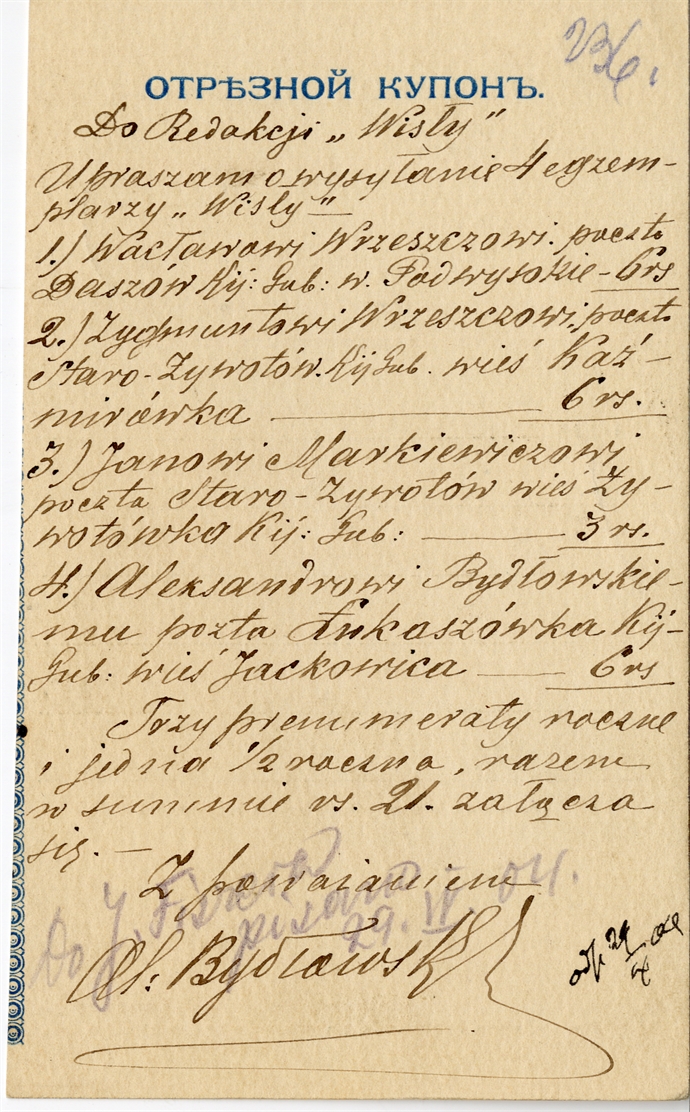 236.
ОТРѢЗНОЙ КУПОНЪ.
Do Redakcji „Wisły"
Upraszam o wysyłanie 4 egzem-
plarzy „Wisły"
1.) Wacławowi Wrzeszczowi. poczta
Daszów Kij: Gub: w. Podwysokie - 6 rs
2.) Zygmuntowi Wrzeszczowi, poczta
Staro-Żywotów. Kij Gub. wieś Kaź-
mirówka — 6 rs.
3.) Janowi Markiewiczowi
poczta Staro-Żywotów wieś Ży-
wotówka Kij: Gub: — 3 rs.
4.) Aleksandrowi Bydłowskie-
mu pozta Łukaszówka Kij-
Gub: wieś Jackowica — 6 rs
Trzy prenumeraty roczne
i jedna 1/2 roczna, razem
w summie rs. 21. załącza
się. —
Z poważaniem
Do J. pisano
29. IV. 04.
Al. Bydłowski
odp. 29